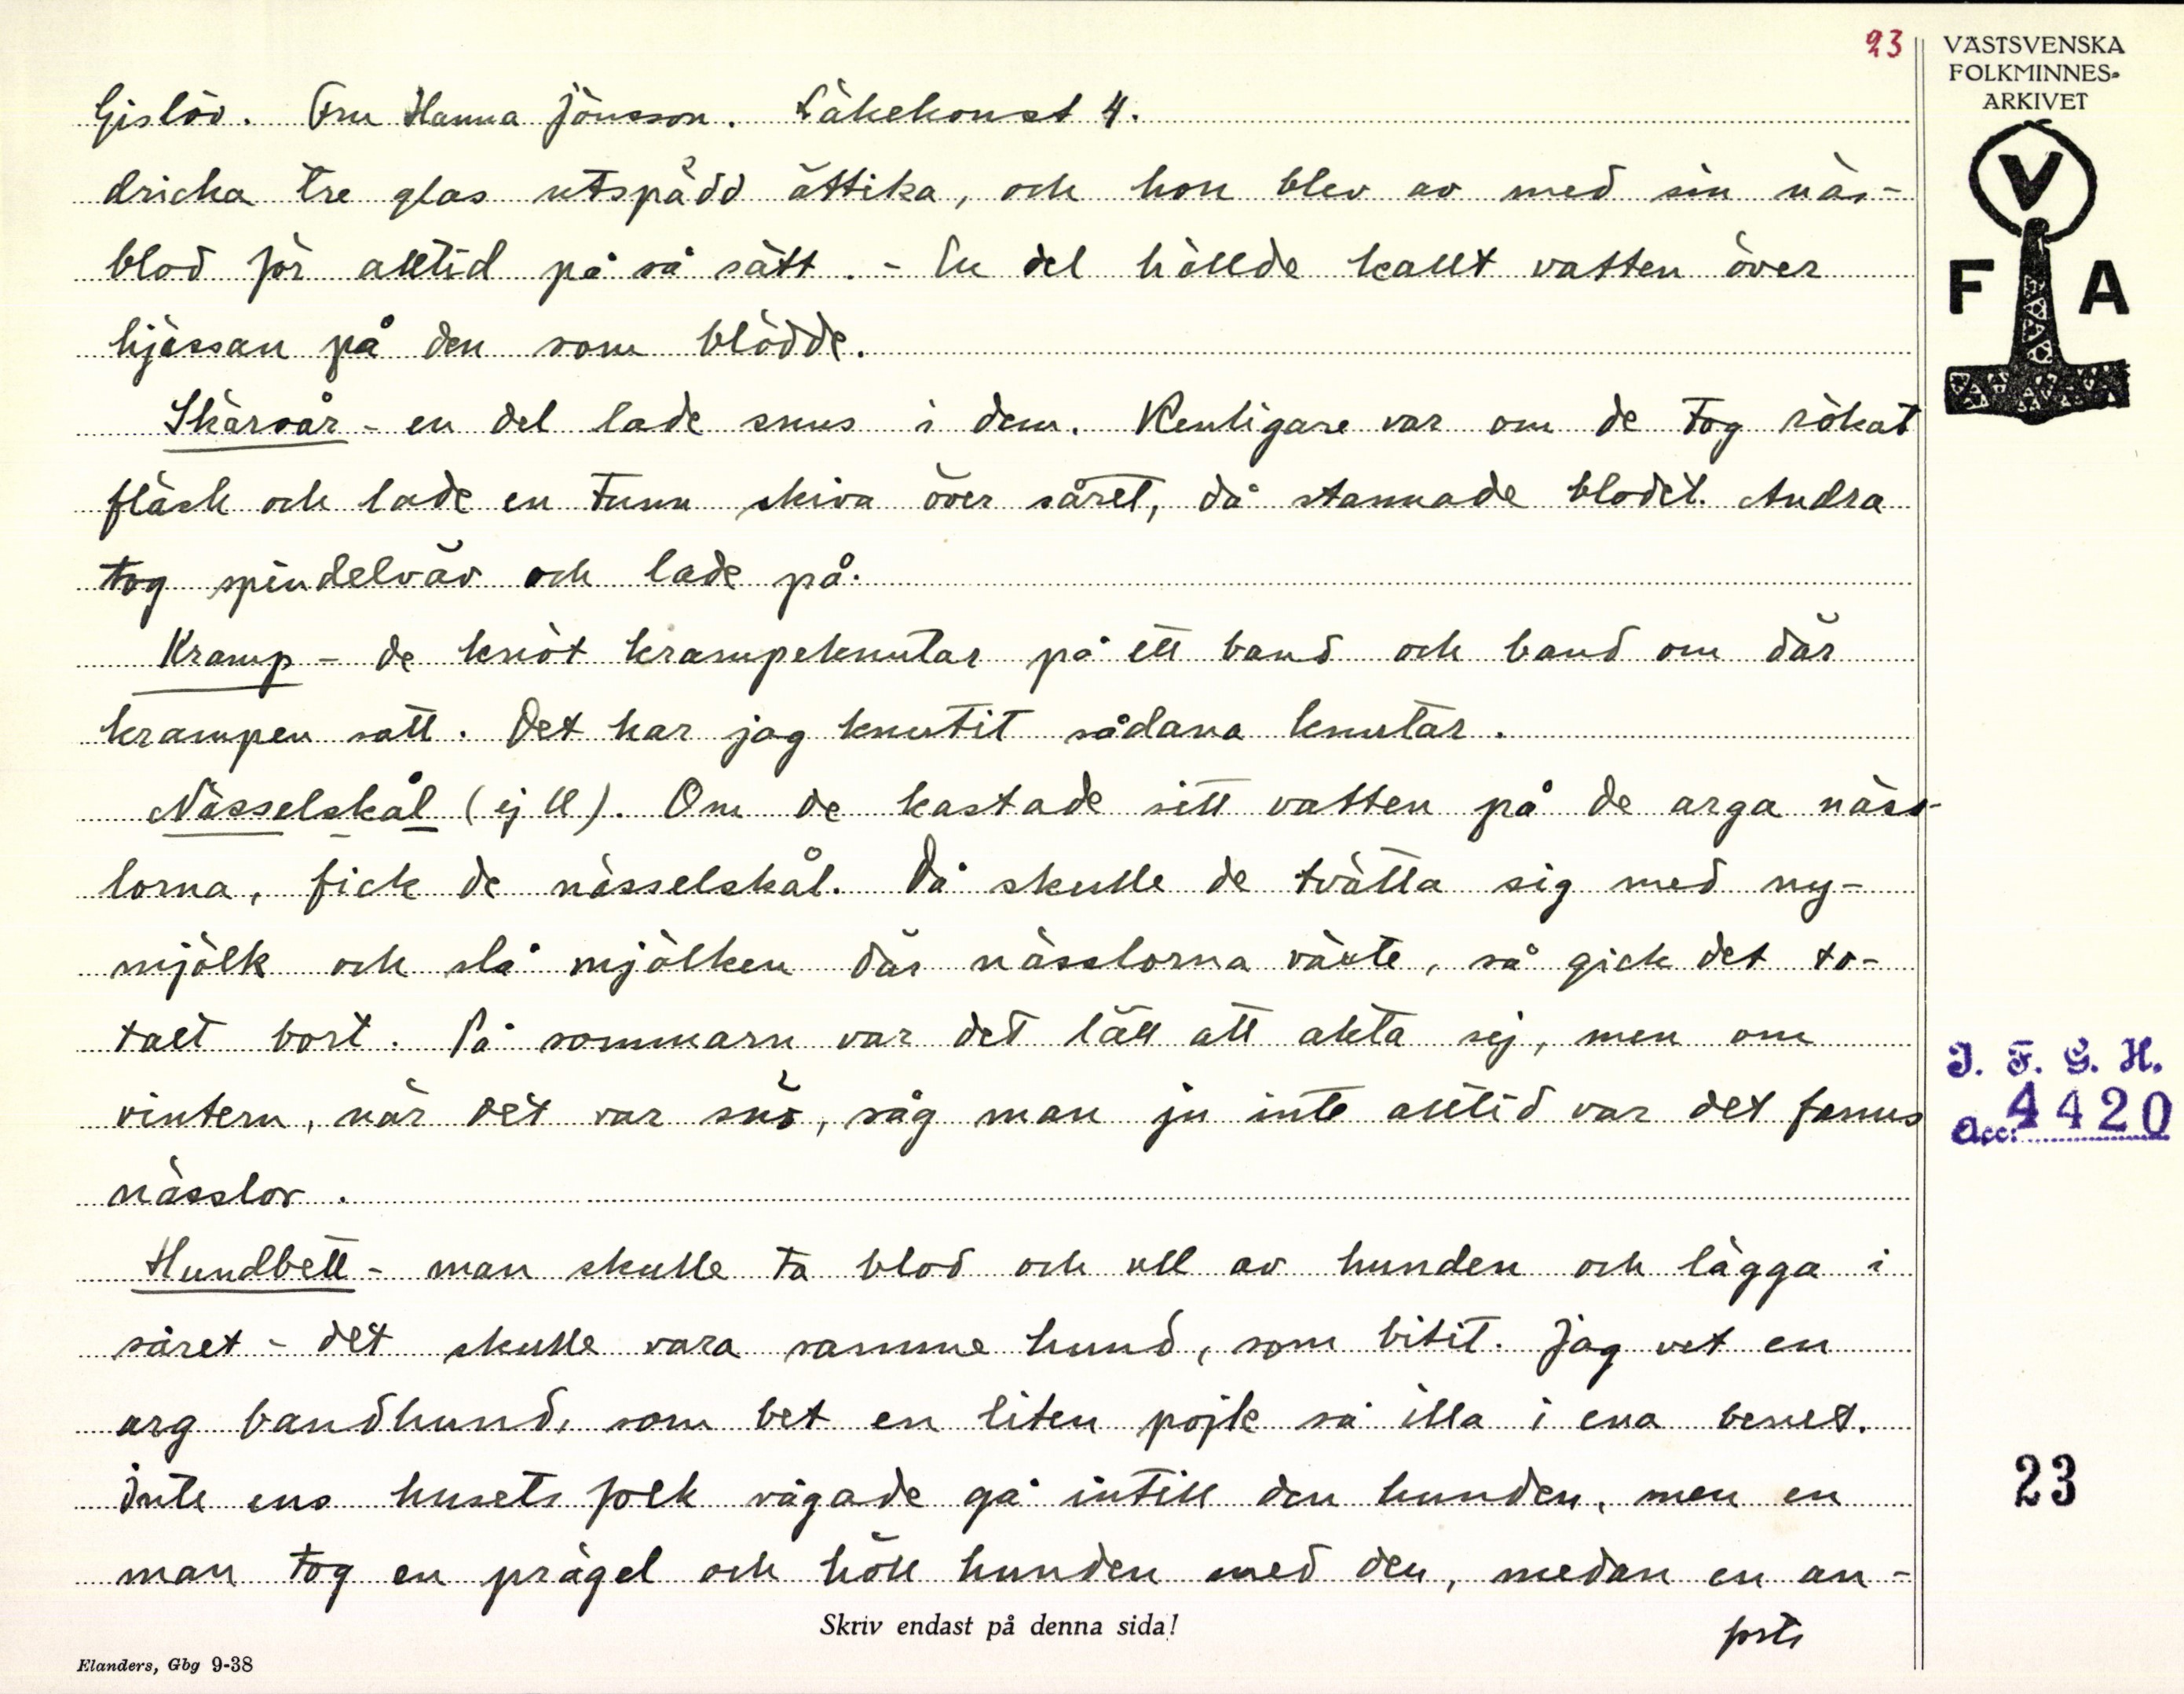 23
VÄSTSVENSKA
FOLKMINNES-
ARKIVET
V
F A
Gislöv. Fru Hanna Jönsson. Läkekonst 4.
dricka tre glas utspädd ättika, och hon blev av med sin näs-
blod för alltid på så sätt. - En del hällde kallt vatten över
hjässan på den som blödde.
Skärsår - en del lade snus i dem. Renligare var om de tog rökat
fläsk och lade en tunn skiva över såret, då stannade blodet. Andra
tog spindelväv och lade på.
Kramp - de knöt krampeknutar på ett band och band om där
krampen satt. Det har jag knutit sådana knutar.
Nässelskål (ej ll). Om de kastade sitt vatten på de arga näss-
lorna, fick de nässelskål. Då skulle de tvätta sig med ny-
mjölk och slå mjölken där nässlorna växte, så gick det to-
talt bort. På sommarn var det lätt att akta sej, men om
vintern, när det var snö, såg man ju inte alltid var det fanns
nässlor.
Hundbett - man skulle ta blod och ull av hunden och lägga i
såret - det skulle vara samme hund, som bitit. Jag vet en
arg bandhund, som bet en liten pojk så illa i ena benet.
Inte ens husets folk vågade gå intill den hunden, men en
man tog en prägel och höll hunden med den, medan en an-
forts
Skriv endast på denna sida!
Elanders, Gbg 9-38
I. F. G. H.
Acc: 4420
23